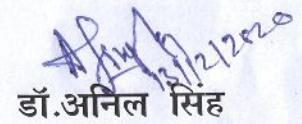 13/12/2020
डॉ.अनिल सिंह